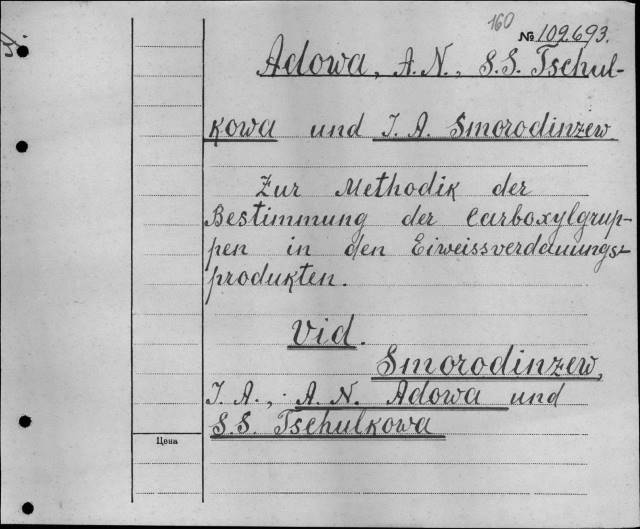 160
№ 102693.
Adowa, A. N., S. S. Tschul-
kowa und I. A. Smorodinzew.
Zur Methodik der
Bestimmung der Carboxylgrup-
pen in den Eiweissverdauungs-
produkten.
Vid.
Smorodinzew,
I. A., A. N. Adowa und
S. S. Tschulkowa
Цена